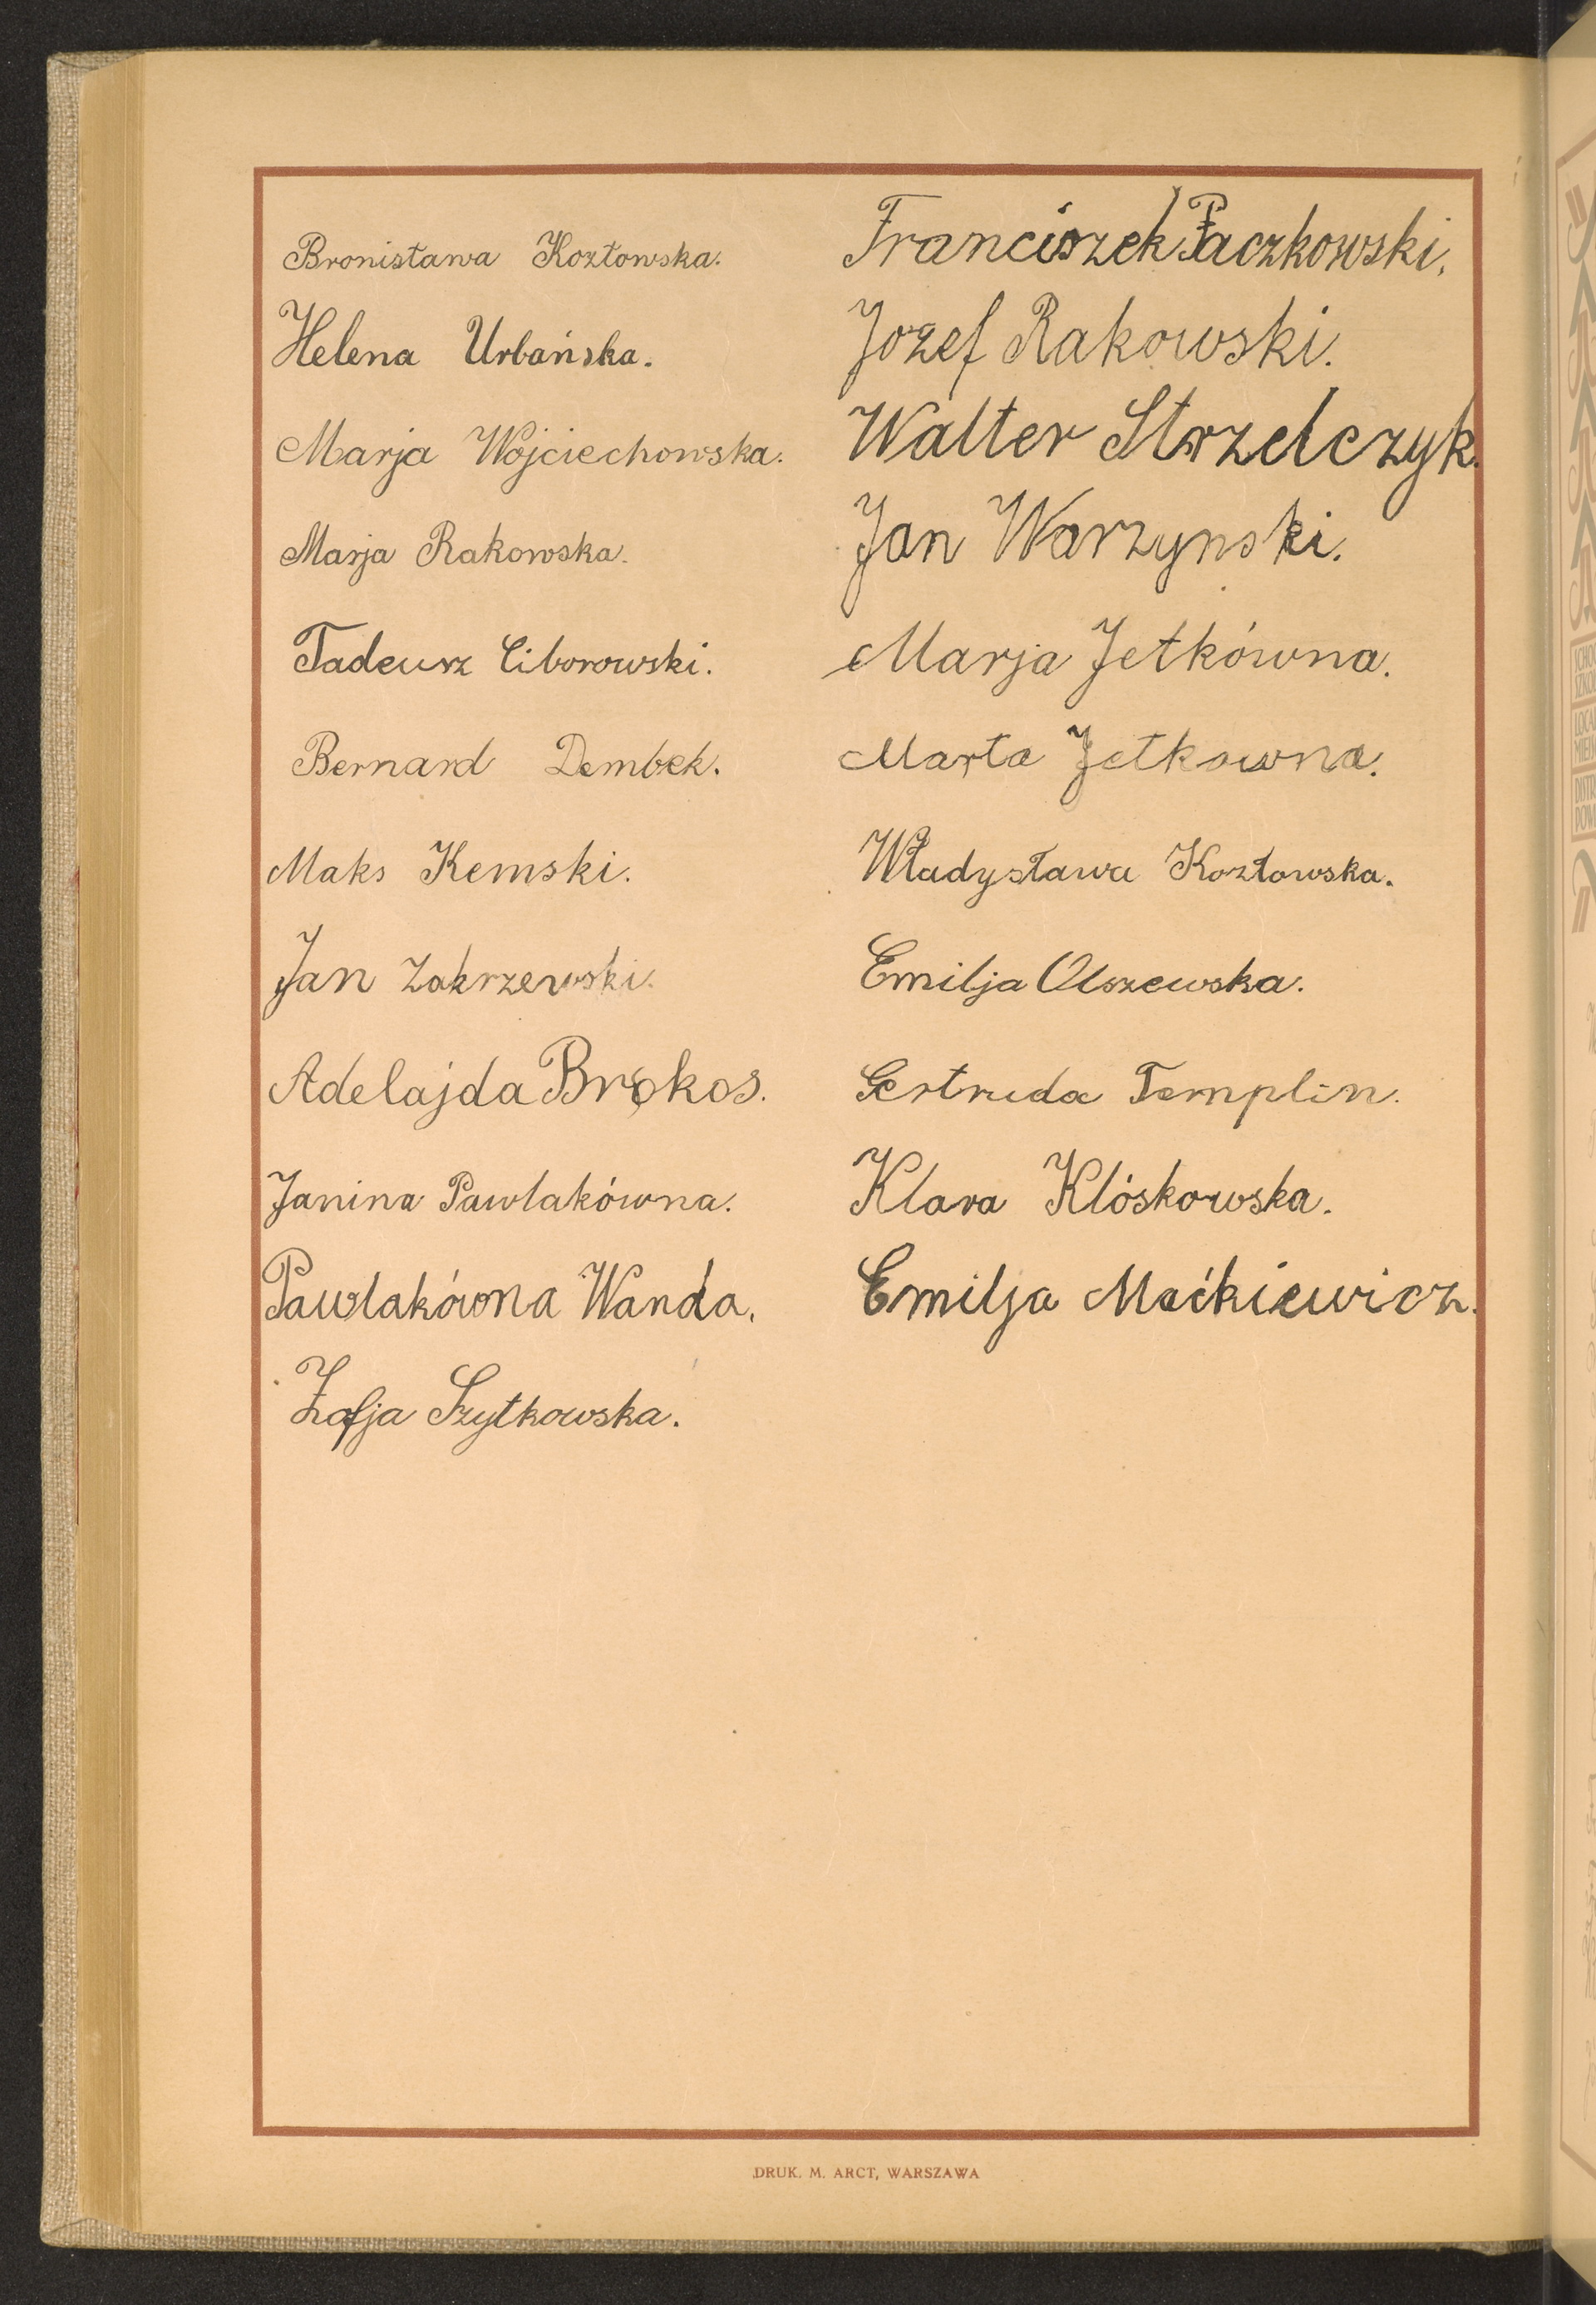 Bronisława Kozłowska.
Helena Urbańska.
Marja Wojciechowska.
Marja Rakowska.
Tadeusz Ciborowski.
Bernard Dembek.
Maks Kemski.
Jan Zakrzewski.
Adelajda Brokos.
Janina Pawlakówna.
Pawlakówna Wanda.
Zofja Szytkowska.
Franciszek Paczkowski.
Jozef Rakowski.
Walter Strzelczyk.
Jan Warzynski.
Marja Jetkówna.
Marta Jetkowna.
Władysława Kozłowska.
Emilja Olszewska.
Gertruda Templin.
Klara Klóskowska.
Emilja Maćkiewicz.
DRUK. M. ARCT, WARSZAWA